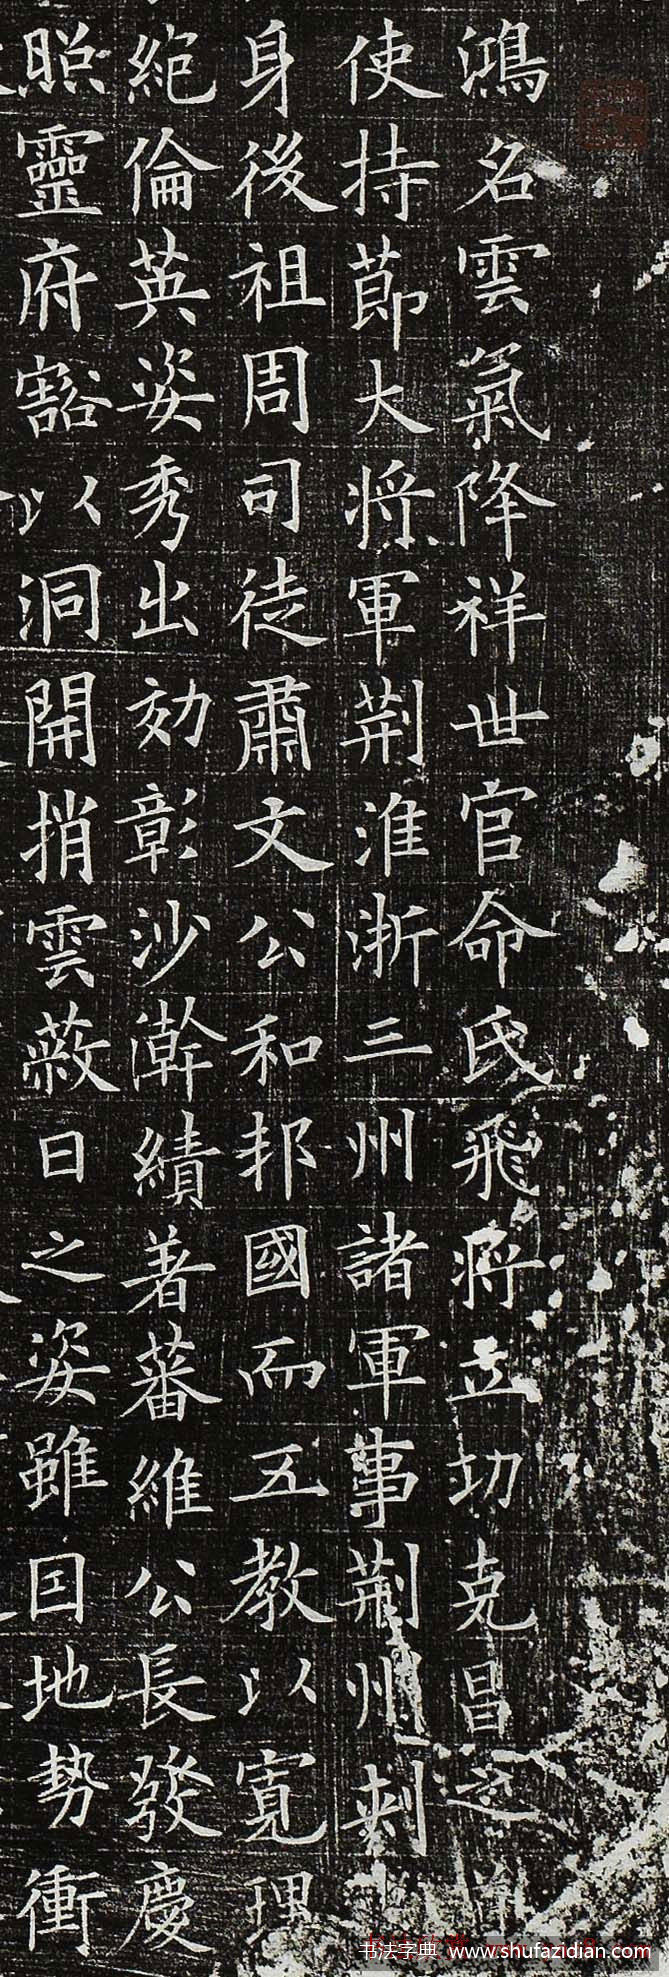 鴻名雲氣降祥世官命氏飛將立功克昌之
使持節大將軍荊淮浙三州諸軍事荊州刺
身後祖周司徒肅文公和邦國而五教以寬理
絕倫英姿秀出効彰沙澣績著蕃維公長發慶
照靈府豁以洞開捎雲蔽日之姿雖因地勢衝
书法字典 www.shufazidian.com